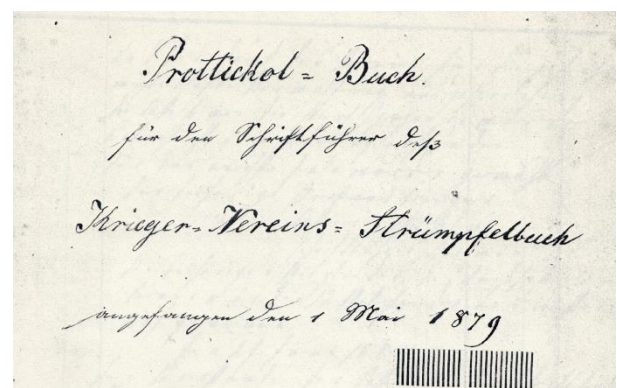 Prottickol = Buch.
für den Schriftführer deß
Krieger = Vereins = Strümpfelbach
angefangen den 1 Mai 1879